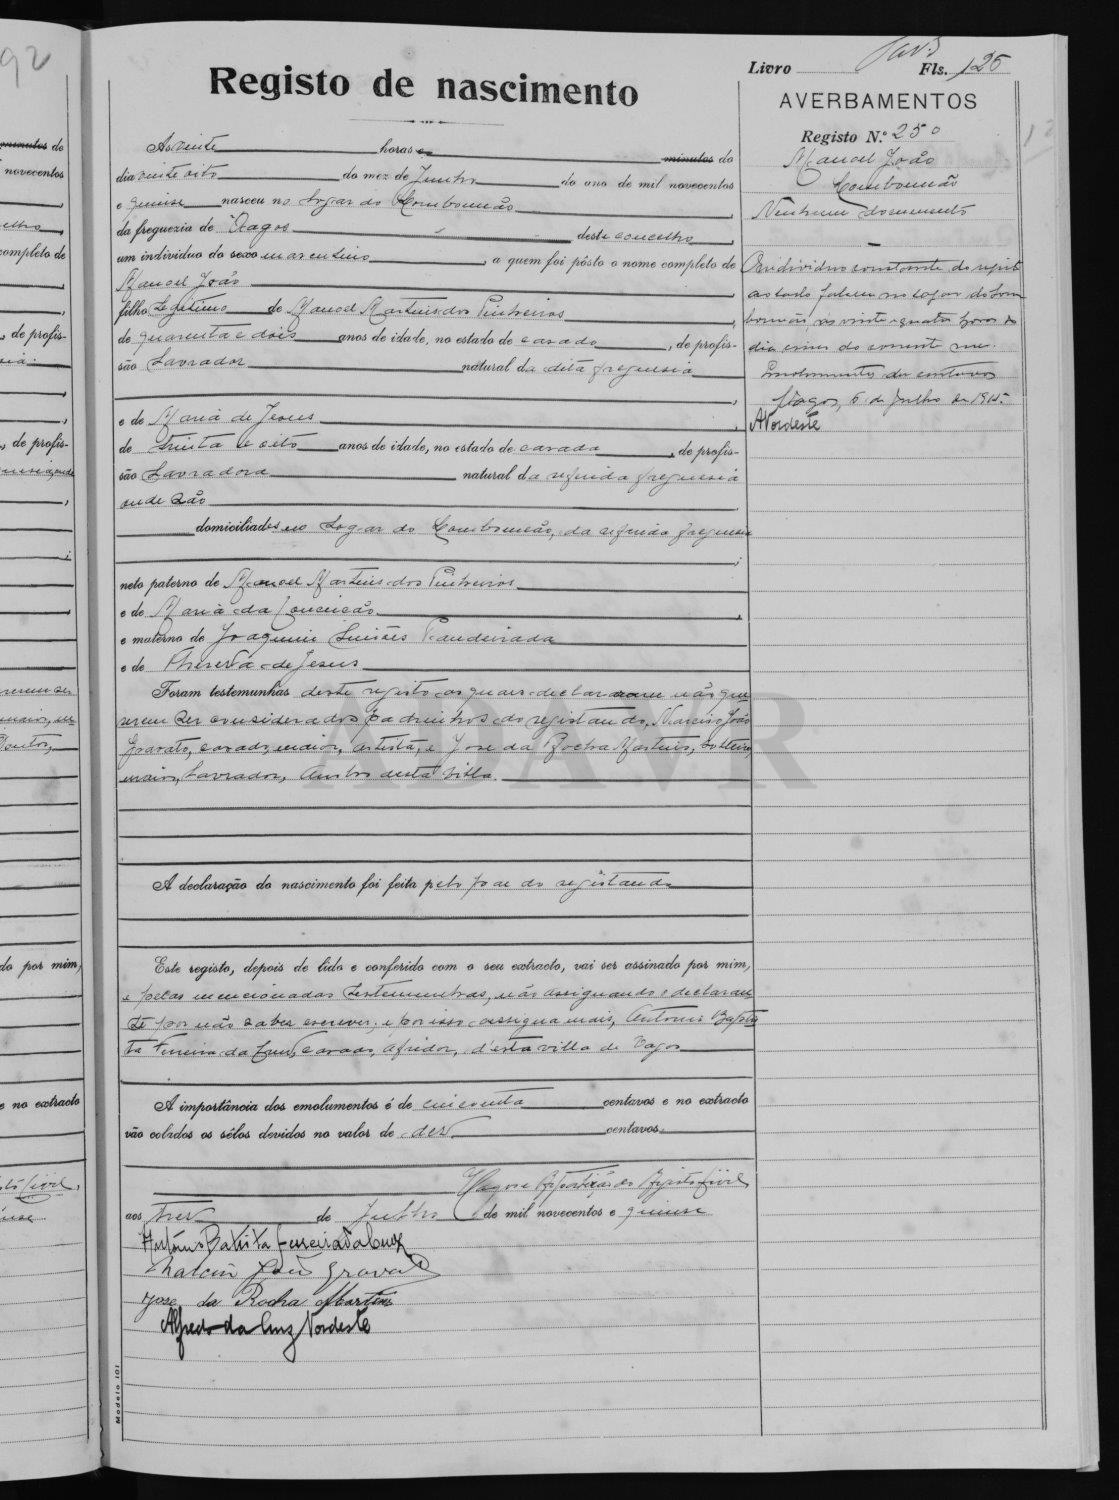 92
Livro Fls. 125
Registo de nascimento
AVERBAMENTOS
Registo N.º 250
Manoel João
Lombomeão
Nenhum documento
O individuo constante do registo
ao lado faleceu no logar do Lom
bomeão, ás vinte e quatro horas do
dia cinco do corrente mez.
Emolumentos dez centavos
Vagos, 6 de Julho de 1915.
ANordeste
Ás vinte horas e minutos do
dia vinte oito do mez de Junho do ano de mil novecentos
e quinze nasceu no Logar do Lombomeão,
da freguezia de Vagos deste concelho,
um individuo do sexo masculino, a quem foi pôsto o nome completo de
Manoel João,
filho Legitimo de Manoel Martins dos Pinheiros,
de quarenta e dois anos de idade, no estado de casado, de profis-
são Lavrador natural da dita freguesia,
e de Maria de Jesus,
de trinta e oito anos de idade, no estado de casada, de profis-
são Lavradora natural da referida freguesia
onde são,
domiciliados no Logar do Lombomeão, da referida freguesia;
neto paterno de Manoel Martins dos Pinheiros
e de Maria da Conceição,
e materno de Joaquim Simões Bandeirada
e de Thereza de Jesus
Foram testemunhas deste registo, as quaes declararam não que
rerem ser considerados padrinhos do registando, Narciso João
Gravato, casado, maior, artista, e José da Rocha Martins, solteiro,
maior, Lavrador, ambos desta villa.
ADAVR
A declaração do nascimento foi feita pelo pae do registando
Este registo, depois de lido e conferido com o seu extracto, vai ser assinado por mim,
e pelas mencionadas testemunhas, não assignando o declaran
te por não saber escrever, e por isso assigna mais, Antonio Baptis
ta Ferreira da Cruz, casado, aferidor, d'esta villa de Vagos
A importância dos emolumentos é de cincoenta centavos e no extracto
vão colados os sêlos devidos no valor de dez centavos.
Vagos e Repartição do Registo Civil
aos trez de Julho de mil novecentos e quinze
António Batista Ferreira da Cruz
Narciso João Gravato
José da Rocha Martins
Alfredo da Cruz Nordeste
Modelo 101